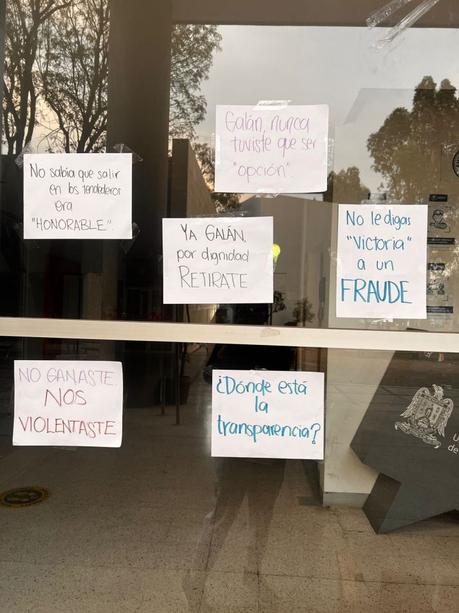 Galán, nunca
tuviste que ser
"opción".
No sabía que salir
en los tendederos
era
"HONORABLE".
YA GALÁN,
por dignidad
RETIRATE
No le digas
"Victoria"
a un
FRAUDE
NO GANASTE,
NOS
VIOLENTASTE
¿Dónde está
la
transparencia?